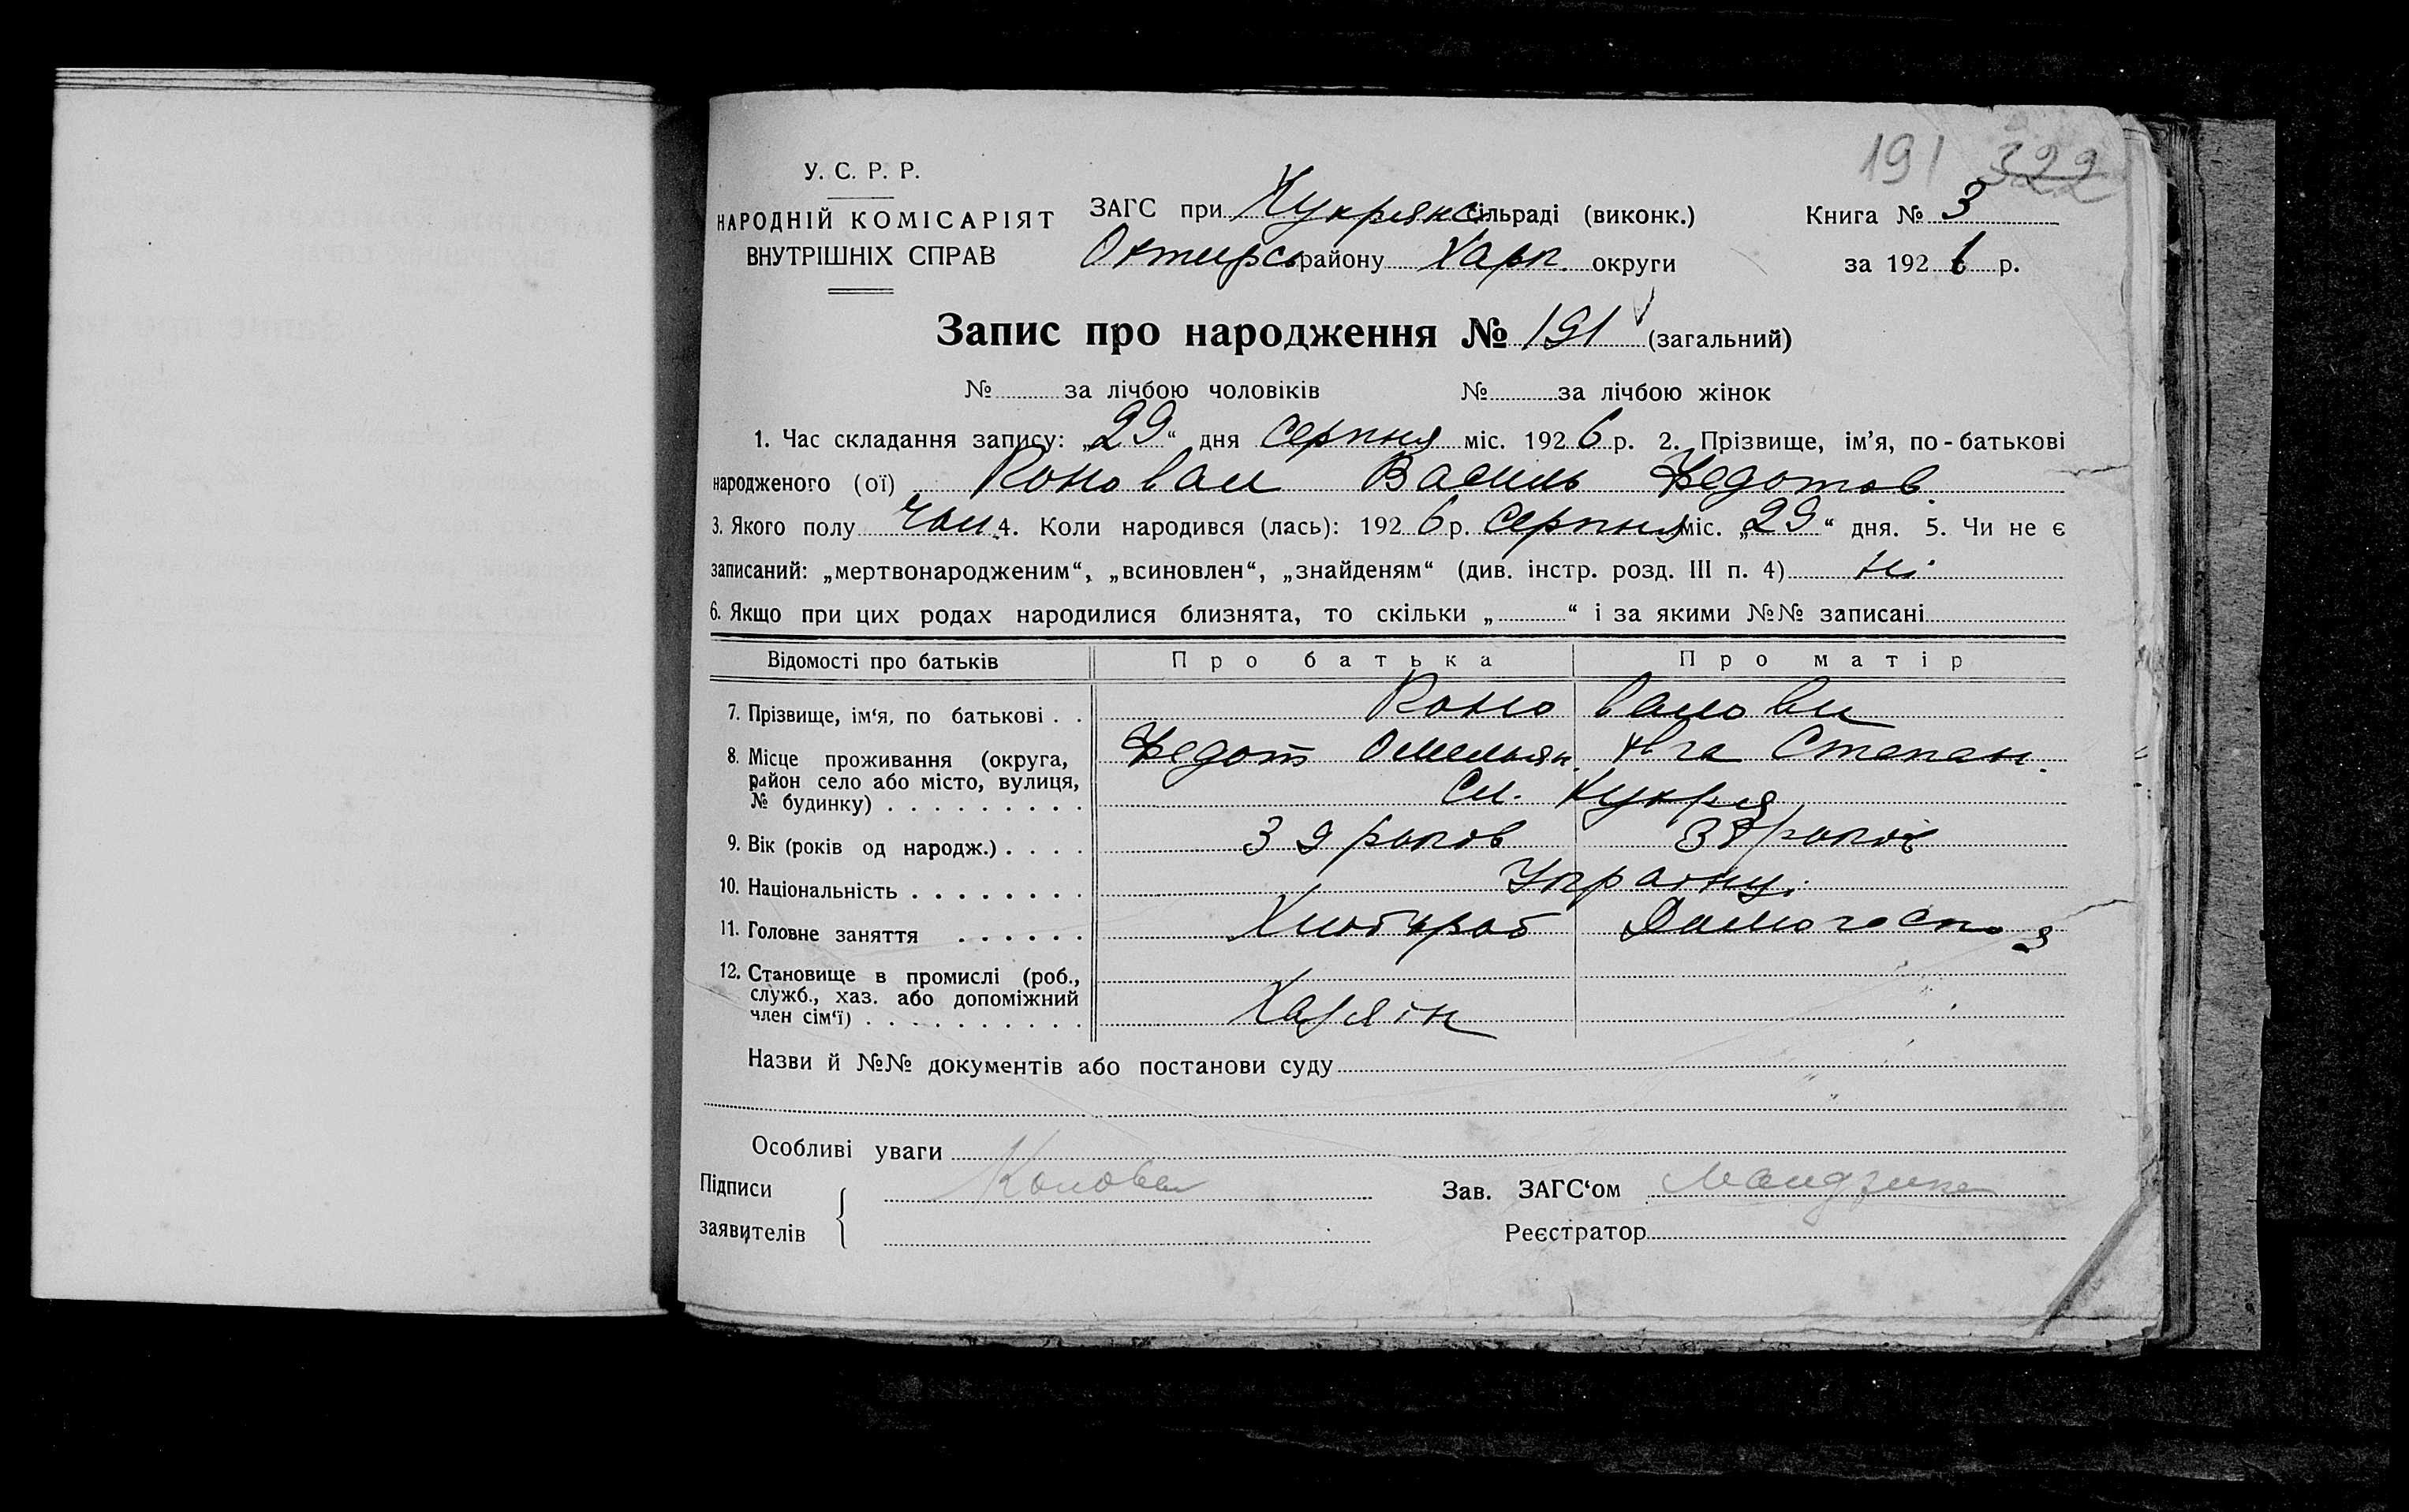 191 322
У. С. Р. Р.
НАРОДНІЙ КОМІСАРІЯТ
ВНУТРІШНІХ СПРАВ
ЗАГС при Кукрянс сільраді (виконк.) Книга № 3
Охтирсь району Харк. округи за 1926 р.
Запис про народження № 191 (загальний)
№ за лічбою чоловіків № за лічбою жінок
1. Час складання запису: „29“ дня серпня міс. 1926 р. 2. Прізвище, ім’я, по-батькові
народженого (ої) Коновал Василь Федотов.
3. Якого полу чол. 4. Коли народився (лась): 1926 р. серпня міс. „29“ дня. 5. Чи не є
записаний: „мертвонародженим“, „всиновлен“, „знайденям“ (див. інстр. розд. III п. 4) Ні
6. Якщо при цих родах народилися близнята, то скільки „ “ і за якими №№ записані
Відомості про батьків Про батька Про матір
7. Прізвище, ім‘я, по батькові . . Коно валови
8. Місце проживання (округа, Федот Омельян. Степан.
район село або місто, вулиця,
№ будинку) . . . . . . . . . Сл. Кукря
9. Вік (років од народж.) . . . . 39 років років
10. Національність . . . . . . . . Українці
11. Головне заняття . . . . . . Хлібороб Домогосп
12. Становище в промислі (роб.,
служб., хаз. або допоміжний
член сім‘ї) . . . . . . . . . . Хазяїн
Назви й №№ документів або постанови суду
Особливі уваги
Підписи Коновал Зав. ЗАГС‘ом
заявителів Реєстратор